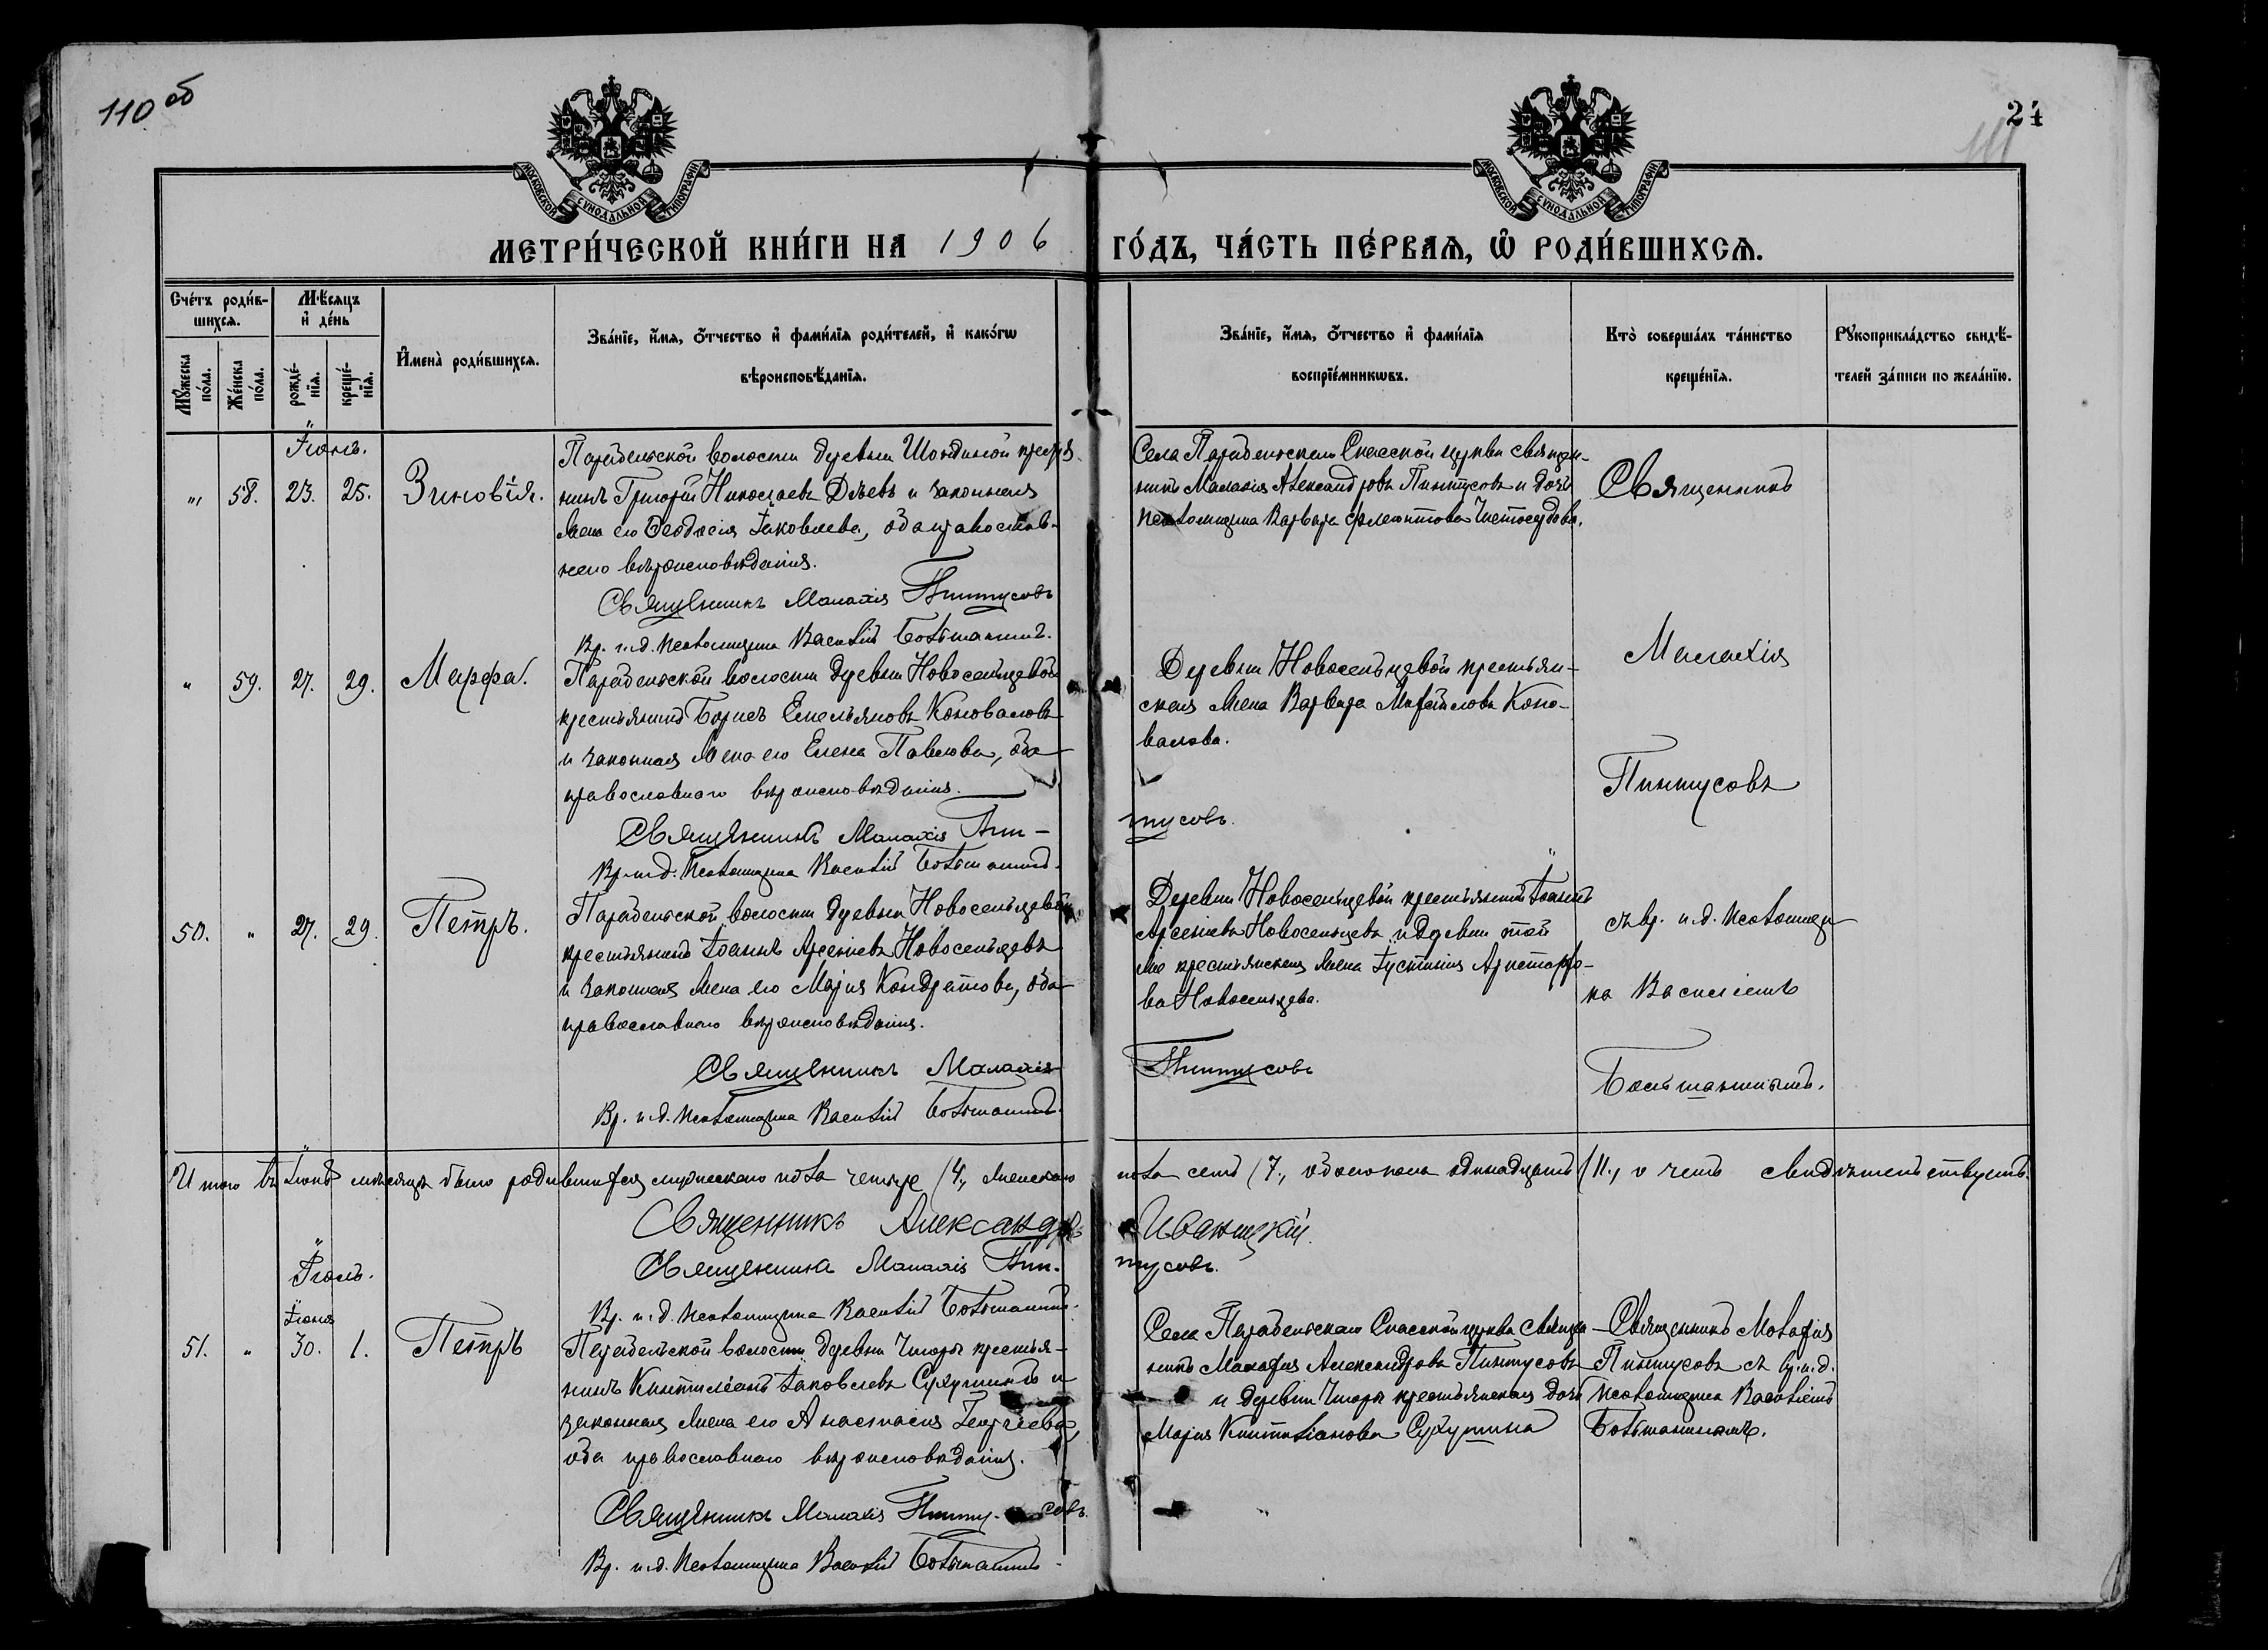 110 об
24
111
МОСКОВСКОЙ СУНОДАЛЬНОЙ ТИПОГРАФІИ
МОСКОВСКОЙ СУНОДАЛЬНОЙ ТИПОГРАФІИ
МЕТРИ́ЧЕСКОЙ КНИ́ГИ НА 1906 ГО́ДЪ, ЧА́СТЬ ПЕ́РВАѦ, Ѽ РОДИ́ВШИХСѦ.
Сче́тъ роди́в-
шихсѧ.
Мѣ́сѧцъ
и҆ де́нь
Мꙋ́жеска
по́ла.
Же́нска
по́ла.
рожде́-
нїѧ.
креще́-
нїѧ.
И҆мена̀ роди́вшихсѧ.
Зва́нїе, и҆́мѧ, ѻ҆́тчество и҆ фами́лїѧ роди́телей, и҆ како́гѡ
вѣроисповѣ́данїѧ.
Зва́нїе, и҆́мѧ, ѻ҆́тчество и҆ фами́лїѧ
воспрїе́мникѡвъ.
Кто̀ соверша́лъ та́инство
креще́нїѧ.
Рꙋкоприкла́дство свидѣ́-
телей за́писи по жела́нїю.
Іюнь.
" 58. 23. 25. Зиновія.
Парабельской волости деревни Шондиной кресть-
нинъ Григорій Николаевъ Дѣевъ и законная
жена его Ѳеодосія Іаковлева, оба православ-
наго вѣроисповѣданія.
Священникъ Малахія Пинтусовъ
Вр. и.д. псаломщика Василій Большанинъ.
Села Парабельскаго Спасской церкви священ-
никъ Малахія Александровъ Пинтусовъ и дочь
псаломщика Варвара Чистосердова.
Священникъ
Малахія
Пинтусовъ
съ вр. и.д. псаломщи-
ка Василіемъ
Большанинымъ.
" 59. 27. 29. Марѳа.
Парабельской волости деревни Новосельцевой
крестьянинъ Борисъ Емельяновъ Коноваловъ
и законная жена его Елена Павлова, оба
православнаго вѣроисповѣданія.
Священникъ Малахія Пин-
тусовъ.
Вр. и.д. псаломщика Василій Большанинъ.
Деревни Новосельцевой крестьян-
ская жена Варвара Михайлова Коно-
валова.
50. " 27. 29. Петръ.
Парабельской волости деревни Новосельцевой
крестьянинъ Іоаннъ Арсеніевъ Новосельцевъ
и законная жена его Марія Кондратова, оба
православнаго вѣроисповѣданія.
Священникъ Малахія Пинтусовъ
Вр. и.д. псаломщика Василій Большанинъ.
Деревни Новосельцевой крестьянинъ Іоаннъ
Арсеніевъ Новосельцевъ и деревни той
же крестьянская жена Іустинія Аристархо-
ва Новосельцева.
Итого въ Іюнѣ мѣсяцѣ было родившихся мужескаго пола четыре /4/, женскаго пола семь /7/, обоего пола одинадцать /11/, о чемъ свидѣтельствуетъ.
Священникъ Александръ Иваницкій.
Священникъ Малахія Пин-
тусовъ.
Вр. и.д. псаломщика Василій Большанинъ.
Іюль.
Іюня
51. " 30. 1. Петръ
Парабельской волости деревни Чигары крестья-
нинъ Киптиліанъ Іаковлевъ Сухушинъ и
законная жена его Анастасія Георгіева,
оба православнаго вѣроисповѣданія.
Священникъ Малахія Пинтусовъ.
Вр. и.д. псаломщика Василій Большанинъ
Села Парабельскаго Спасской церкви священ-
никъ Малахія Александровъ Пинтусовъ
и деревни Чигары крестьянская дочь
Марія Сухушина
Священникъ Малахія
Пинтусовъ съ вр.и.д.
псаломщика Василіемъ
Большанинымъ.